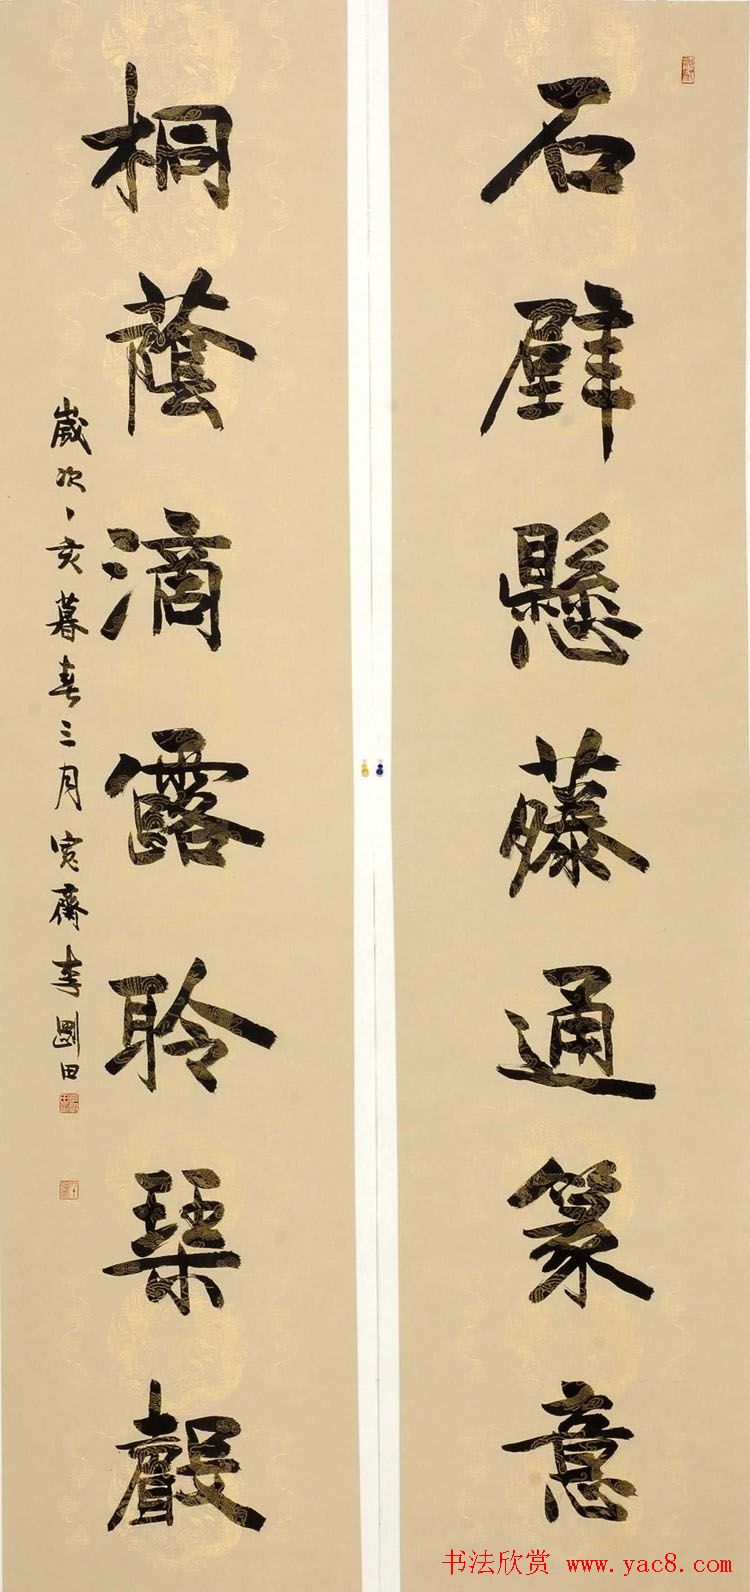 石壁懸藤通篆意
桐蔭滴露聆琹聲
歲次丁亥暮春三月寬齋李剛田
书法欣赏 www.yac8.com